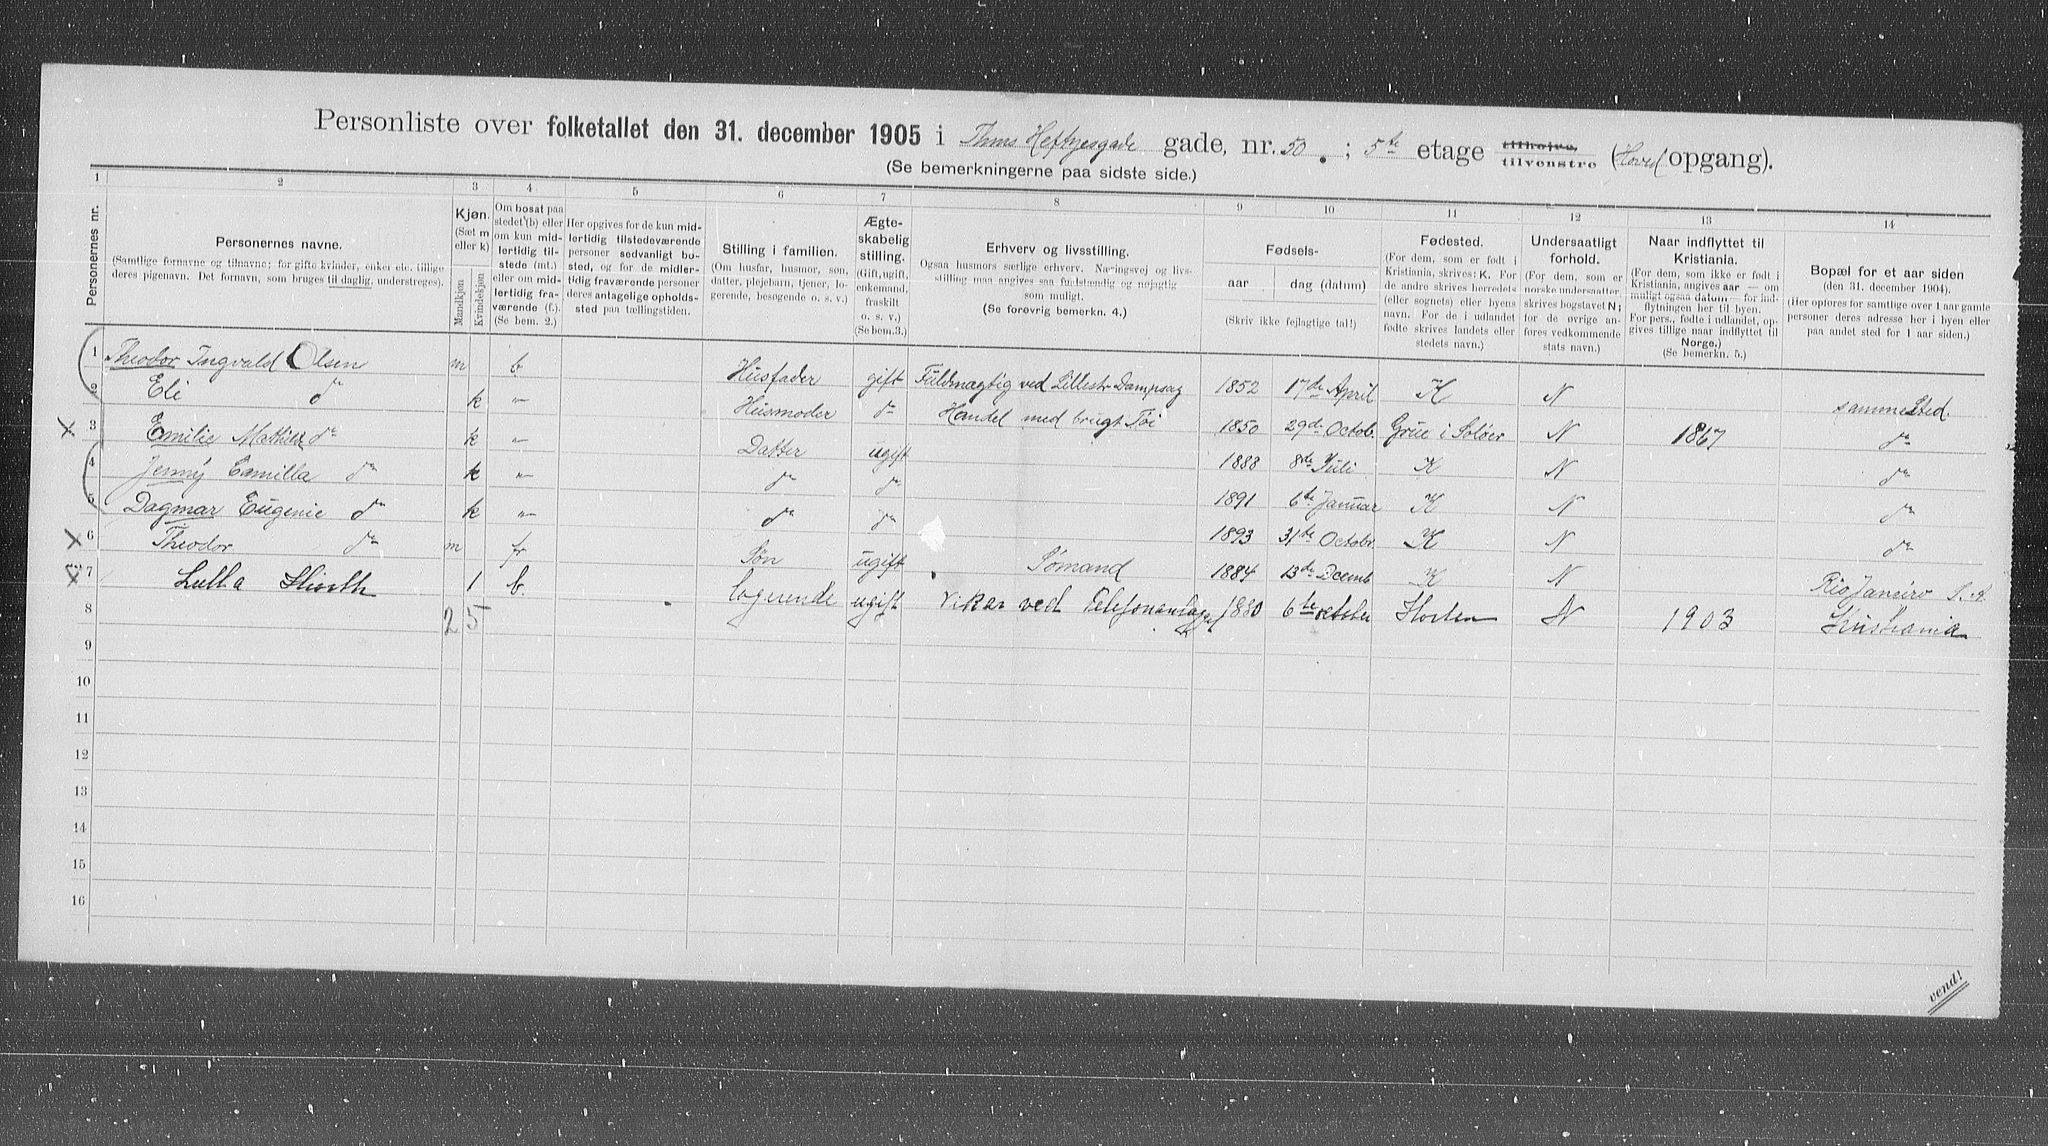 Personliste over folketallet den 31. december 1905 i Thms Heftyesgade gade, nr. 50. ; 5te etage tilhøire, tilvenstre (Hoved opgang).
(Se bemerkningerne paa sidste side.)
1 2 3 4 5 6 7 8 9 10 11 12 13 14
Personernes nr.
Personernes navne.
(Samtlige fornavne og tilnavne; for gifte kvinder, enker etc. tillige
deres pigenavn. Det fornavn, som bruges til daglig, understreges).
Kjøn.
(Sæt m
eller k)
Mandkjøn
Kvindekjøn
Om bosat paa
stedet (b) eller
om kun mid-
lertidig til-
stede (mt.)
eller om mid-
lertidig fra-
værende (f.).
(Se bem. 2.)
Her opgives for de kun mid-
lertidig tilstedeværende
personer sedvanligt bo-
sted, og for de midler-
tidig fraværende personer
deres antagelige opholds-
sted paa tællingstiden.
Stilling i familien.
(Om husfar, husmor, søn,
datter, plejebarn, tjener, lo-
gerende, besøgende o. s. v.)
Ægte-
skabelig
stilling.
(Gift, ugift,
enkemand,
fraskilt
o. s. v.)
(Se bem. 3.)
Erhverv og livsstilling.
Ogsaa husmors særlige erhverv. Næringsvej og livs-
stilling maa angives saa fuldstændig og nøjagtig
som muligt.
(Se forøvrig bemerkn. 4.)
Fødsels-
aar
dag (datum)
(Skriv ikke fejlagtige tal!)
Fødested.
(For dem, som er født i
Kristiania, skrives: K. For
de andre skrives herredets
(eller sognets) eller byens
navn. For de i udlandet
fødte skrives landets eller
stedets navn.)
Undersaatligt
forhold.
(For dem, som er
norske undersaatter,
skrives bogstavet N;
for de øvrige an-
føres vedkommende
stats navn.)
Naar indflyttet til
Kristiania.
(For dem, som ikke er født i
Kristiania, angives aar — om
muligt ogsaa datum — for ind-
flytningen her til byen.
For pers., fødte i udlandet, op-
gives tillige naar indflyttet til
Norge.)
(Se bemerkn. 5.)
Bopæl for et aar siden
(den 31. december 1904).
(Her opføres for samtlige over 1 aar gamle
personer deres adresse her i byen eller
paa andet sted for 1 aar siden.)
1 Theodor Ingvald Olsen m b. Husfader gift Fuldmægtig ved Lillestr. Dampsag 1852 17de April K N sammested.
2 Eli do k " Husmoder do Handel med brugt Tøi 1850 29de Octob. Grue i Solør N 1867 do
3 Emilie Mathilde do k " Datter ugift 1888 8de Juli K N do
4 Jenny Camilla do k " do do 1891 6te Januar K N do
5 Dagmar Eugenie do k " do do 1893 31te Octobr. K N do
6 Theodor do m fr Søn ugift Sømand 1884 13de Decemb K N Rio Janeiro S. A.
7 Lulla Hiorth 1 b. logerende ugift Vikar ved Telefonanlægget 1880 6te october Horten N 1903 Kristiania
8 2 5
9
10
11
12
13
14
15
16
vend!